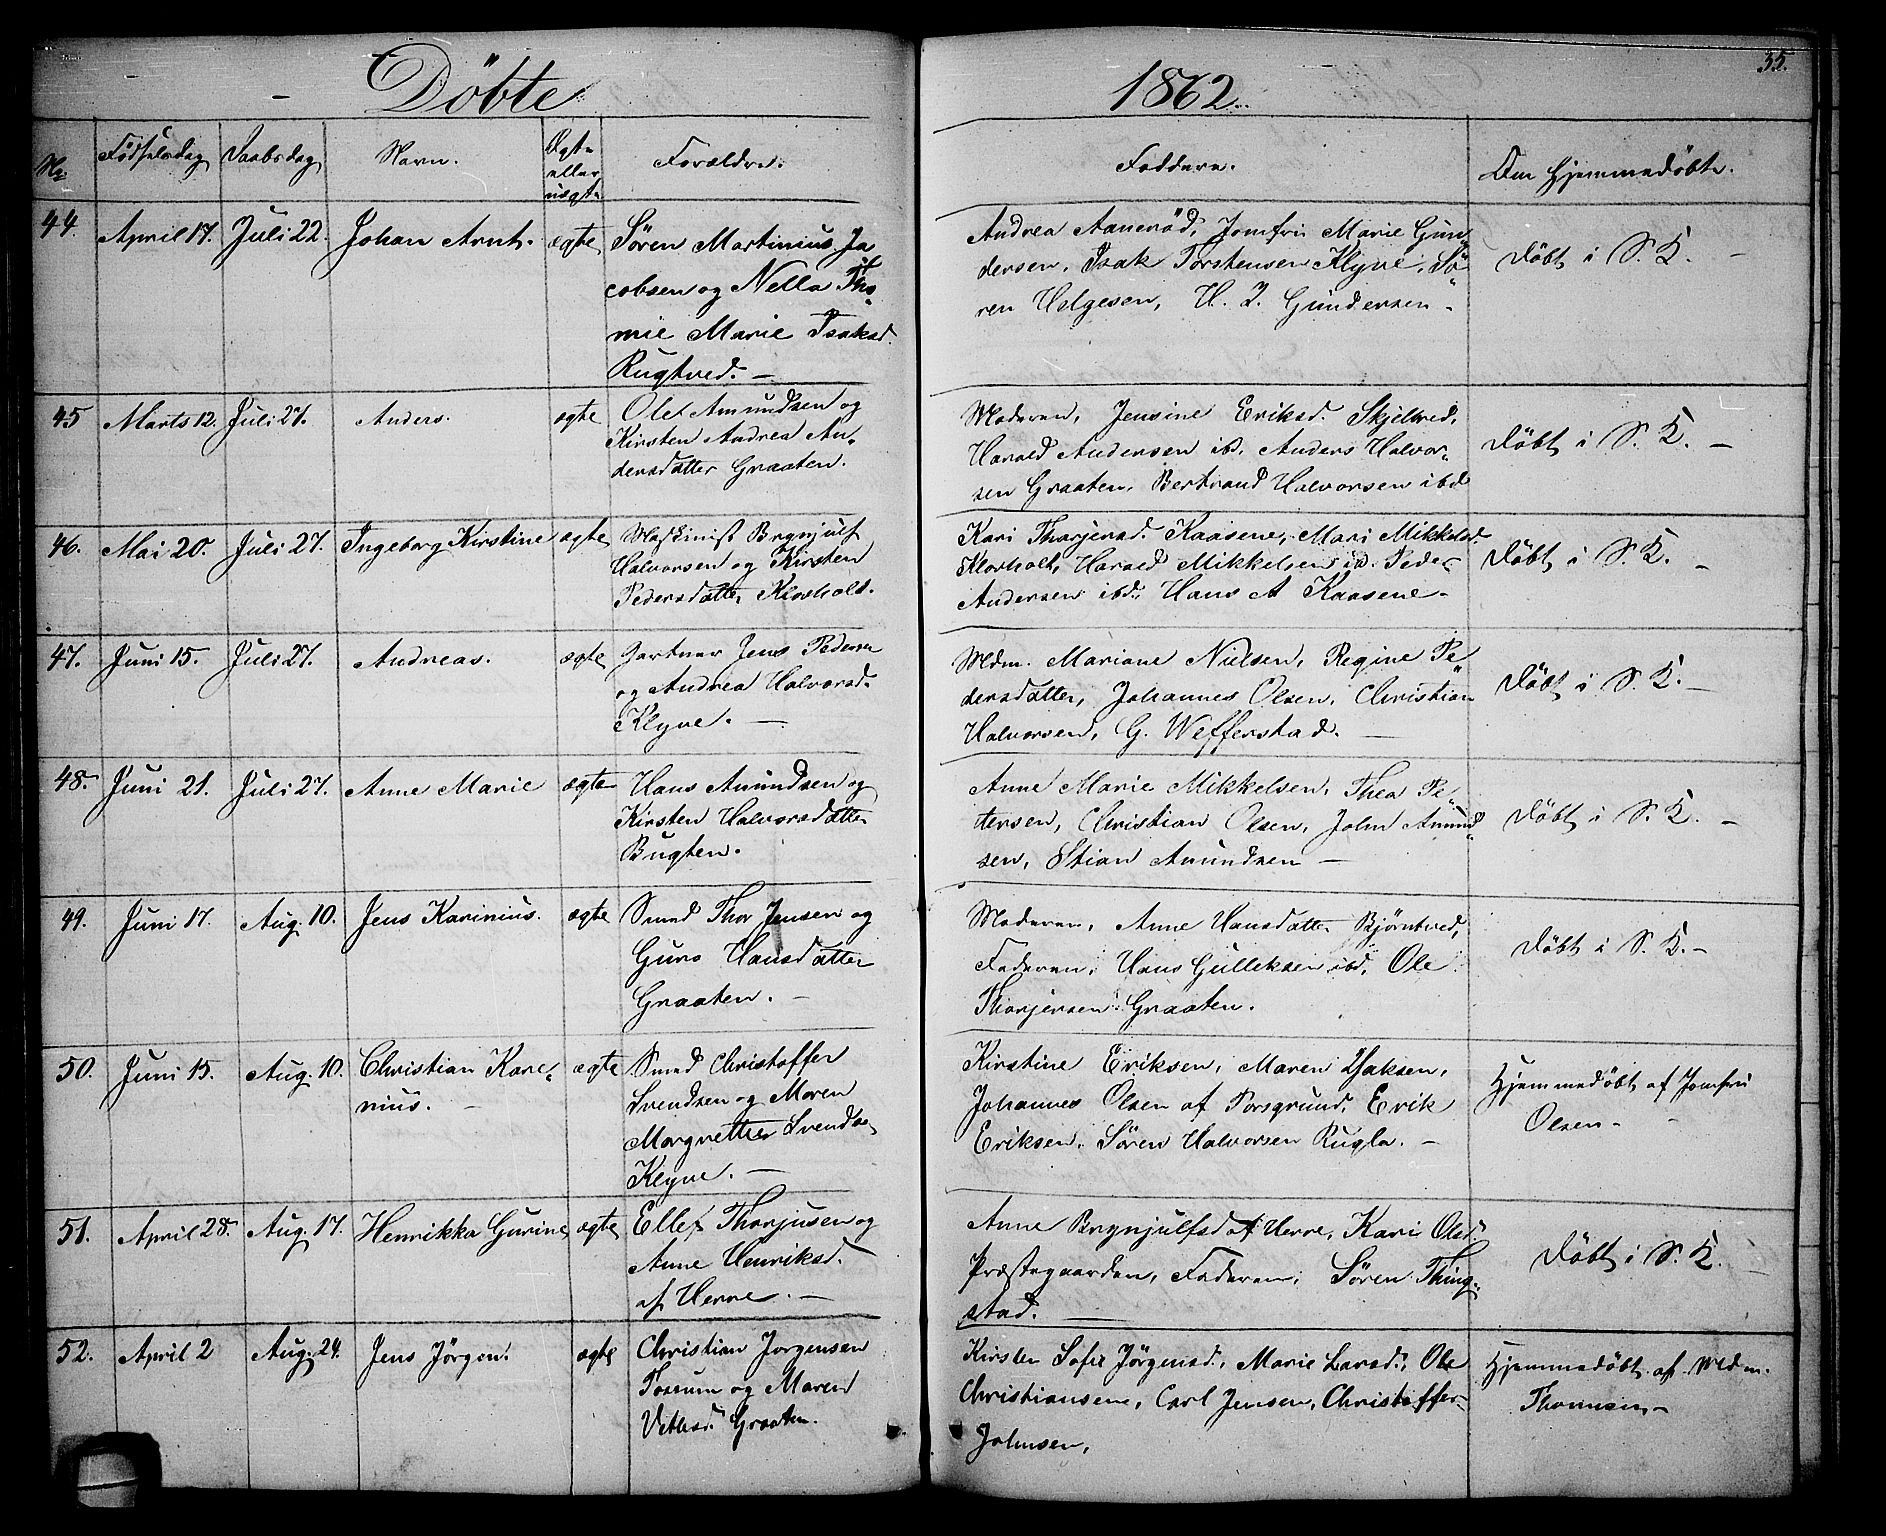 Döbte
1862.
35.
No Födselsdag Daabsdag Navn. Ægte eller uægte Forældre. Faddere. Om Hjemmedöbte.
44. April 17. Juli 22. Johan Arnt. ægte
Sören Martinius Ja
cobsen og Nella Tho-
mie Marie Isaksd.
Rugtved. —
Andrea Aanerød, Jomfru Marie Gun
dersen, Isak Torstensen Klyve, Sö
ren Helgesen, H. J. Gundersen.
Döbt i S. K. —
45 Marts 12. Juli 27. Anders. ægte
Olef Amundsen og
Kirsten Andrea An-
dersdatter Graaten.
Moderen, Jensine Eriksd. Skjelbred,
Harald Andersen ibd, Anders Halvor-
sen Graaten, Bertrand Halvorsen ibd
Döbt i S. K. —
46. Mai 20. Juli 27. Ingeborg Kirstine ægte
Maskinist Brynjulf
Halvorsen og Kirsten
Pedersdatter Klovholt.
Kari Thorjersd. Kaasene, Mari Mikkelsd.
Klovholt, Harald Mikkelsen ibd. Peder
Andersen ibd, Hans A Kaasene.
Döbt i S. K. —
47. Juni 15. Juli 27. Andreas. ægte
Gartner Jens Pedersen
og Andrea Halvorsd.
Klyve. —
Mdm. Mariane Nielsen, Regine Pe
dersdatter, Johannes Olsen, Christian
Halvorsen, G. Wefferstad. —
Döbt i S. K. —
48. Juni 21. Juli 27. Anne Marie ægte
Hans Amundsen og
Kirsten Halvorsdatter
Bugten.
Anne Marie Mikkelsen, Thea Pe
tersen, Christian Olsen, John Amund
sen, Stian Amundsen —
Döbt i S. K. —
49. Juni 17. Aug. 10. Jens Karinius. ægte
Smed Thor Jensen og
Guro Hansdatter
Graaten. —
Moderen, Anne Hansdatter Bjørntved,
Faderen, Hans Gulleksen ibd, Ole
Thorjersen Graaten.
Döbt i S. K. —
50. Juni 15. Aug. 10. Christian Kare-
nius. — ægte
Smed Christoffer
Svendsen og Maren
Margrethe Svends
Klyve. —
Kirstine Eriksen, Maren Isaksen,
Johannes Olsen af Porsgrund, Erik
Eriksen, Sören Halvorsen Rugla. —
Hjemmedöbt af Jomfru
Olsen. —
51. April 28. Aug. 17. Henrikka Gurine ægte
Ellef Thorjusen og
Anne Henriksd.
af Herre. —
Anne Brynjulfsd af Herre, Kari Olsd.
Præstegaarden, Faderen, Sören Thing-
stad. —
Döbt i S. K. —
52. April 2 Aug. 24. Jens Jörgen. ægte
Christian Jorgensen
Fossum og Maren
Graaten.
Kirsten Sofie Jörgensd., Marie Larsd., Ole
Christiansen, Carl Jensen, Christoffer
Johnsen,
Hjemmedöbt af Mdm.
Thomsen. —